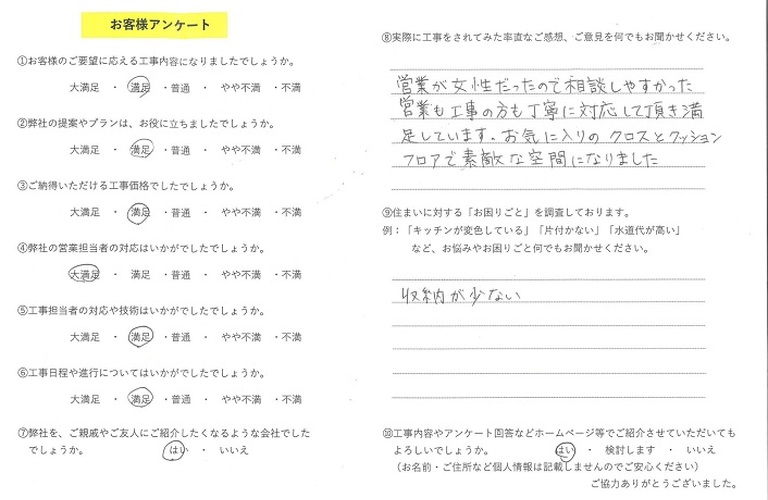 お客様アンケート
①お客様のご要望に応える工事内容になりましたでしょうか。
大満足 ・ 満足 ・普通 ・ やや不満 ・不満
②弊社の提案やプランは、お役に立ちましたでしょうか。
大満足 ・ 満足 ・普通 ・ やや不満 ・不満
③ご納得いただける工事価格でしたでしょうか。
大満足 ・ 満足 ・普通 ・ やや不満 ・不満
④弊社の営業担当者の対応はいかがでしたでしょうか。
大満足 ・ 満足 ・普通 ・ やや不満 ・不満
⑤工事担当者の対応や技術はいかがでしたでしょうか。
大満足 ・ 満足 ・普通 ・ やや不満 ・不満
⑥工事日程や進行についてはいかがでしたでしょうか。
大満足 ・ 満足 ・普通 ・ やや不満 ・不満
⑦弊社を、ご親戚やご友人にご紹介したくなるような会社でした
でしょうか。 はい ・ いいえ
⑧実際に工事をされてみた率直なご感想、ご意見を何でもお聞かせください。
営業が女性だったので相談しやすかった
営業も工事の方も丁寧に対応して頂き満
足しています。お気に入りのクロスとクッション
フロアで素敵な空間になりました
⑨住まいに対する「お困りごと」を調査しております。
例：「キッチンが変色している」「片付かない」「水道代が高い」
など、お悩みやお困りごと何でもお聞かせください。
収納が少ない
⑩工事内容やアンケート回答などホームページ等でご紹介させていただいても
よろしいでしょうか。 はい ・ 検討します ・ いいえ
（お名前・ご住所など個人情報は記載しませんのでご安心ください）
ご協力ありがとうございました。